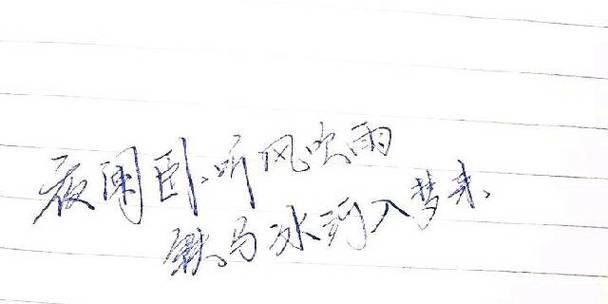 夜阑卧听风吹雨
铁马冰河入梦来